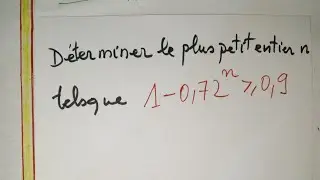 Déterminer le plus petit entier n
telsque 1-0,72ⁿ ⩾ 0,9